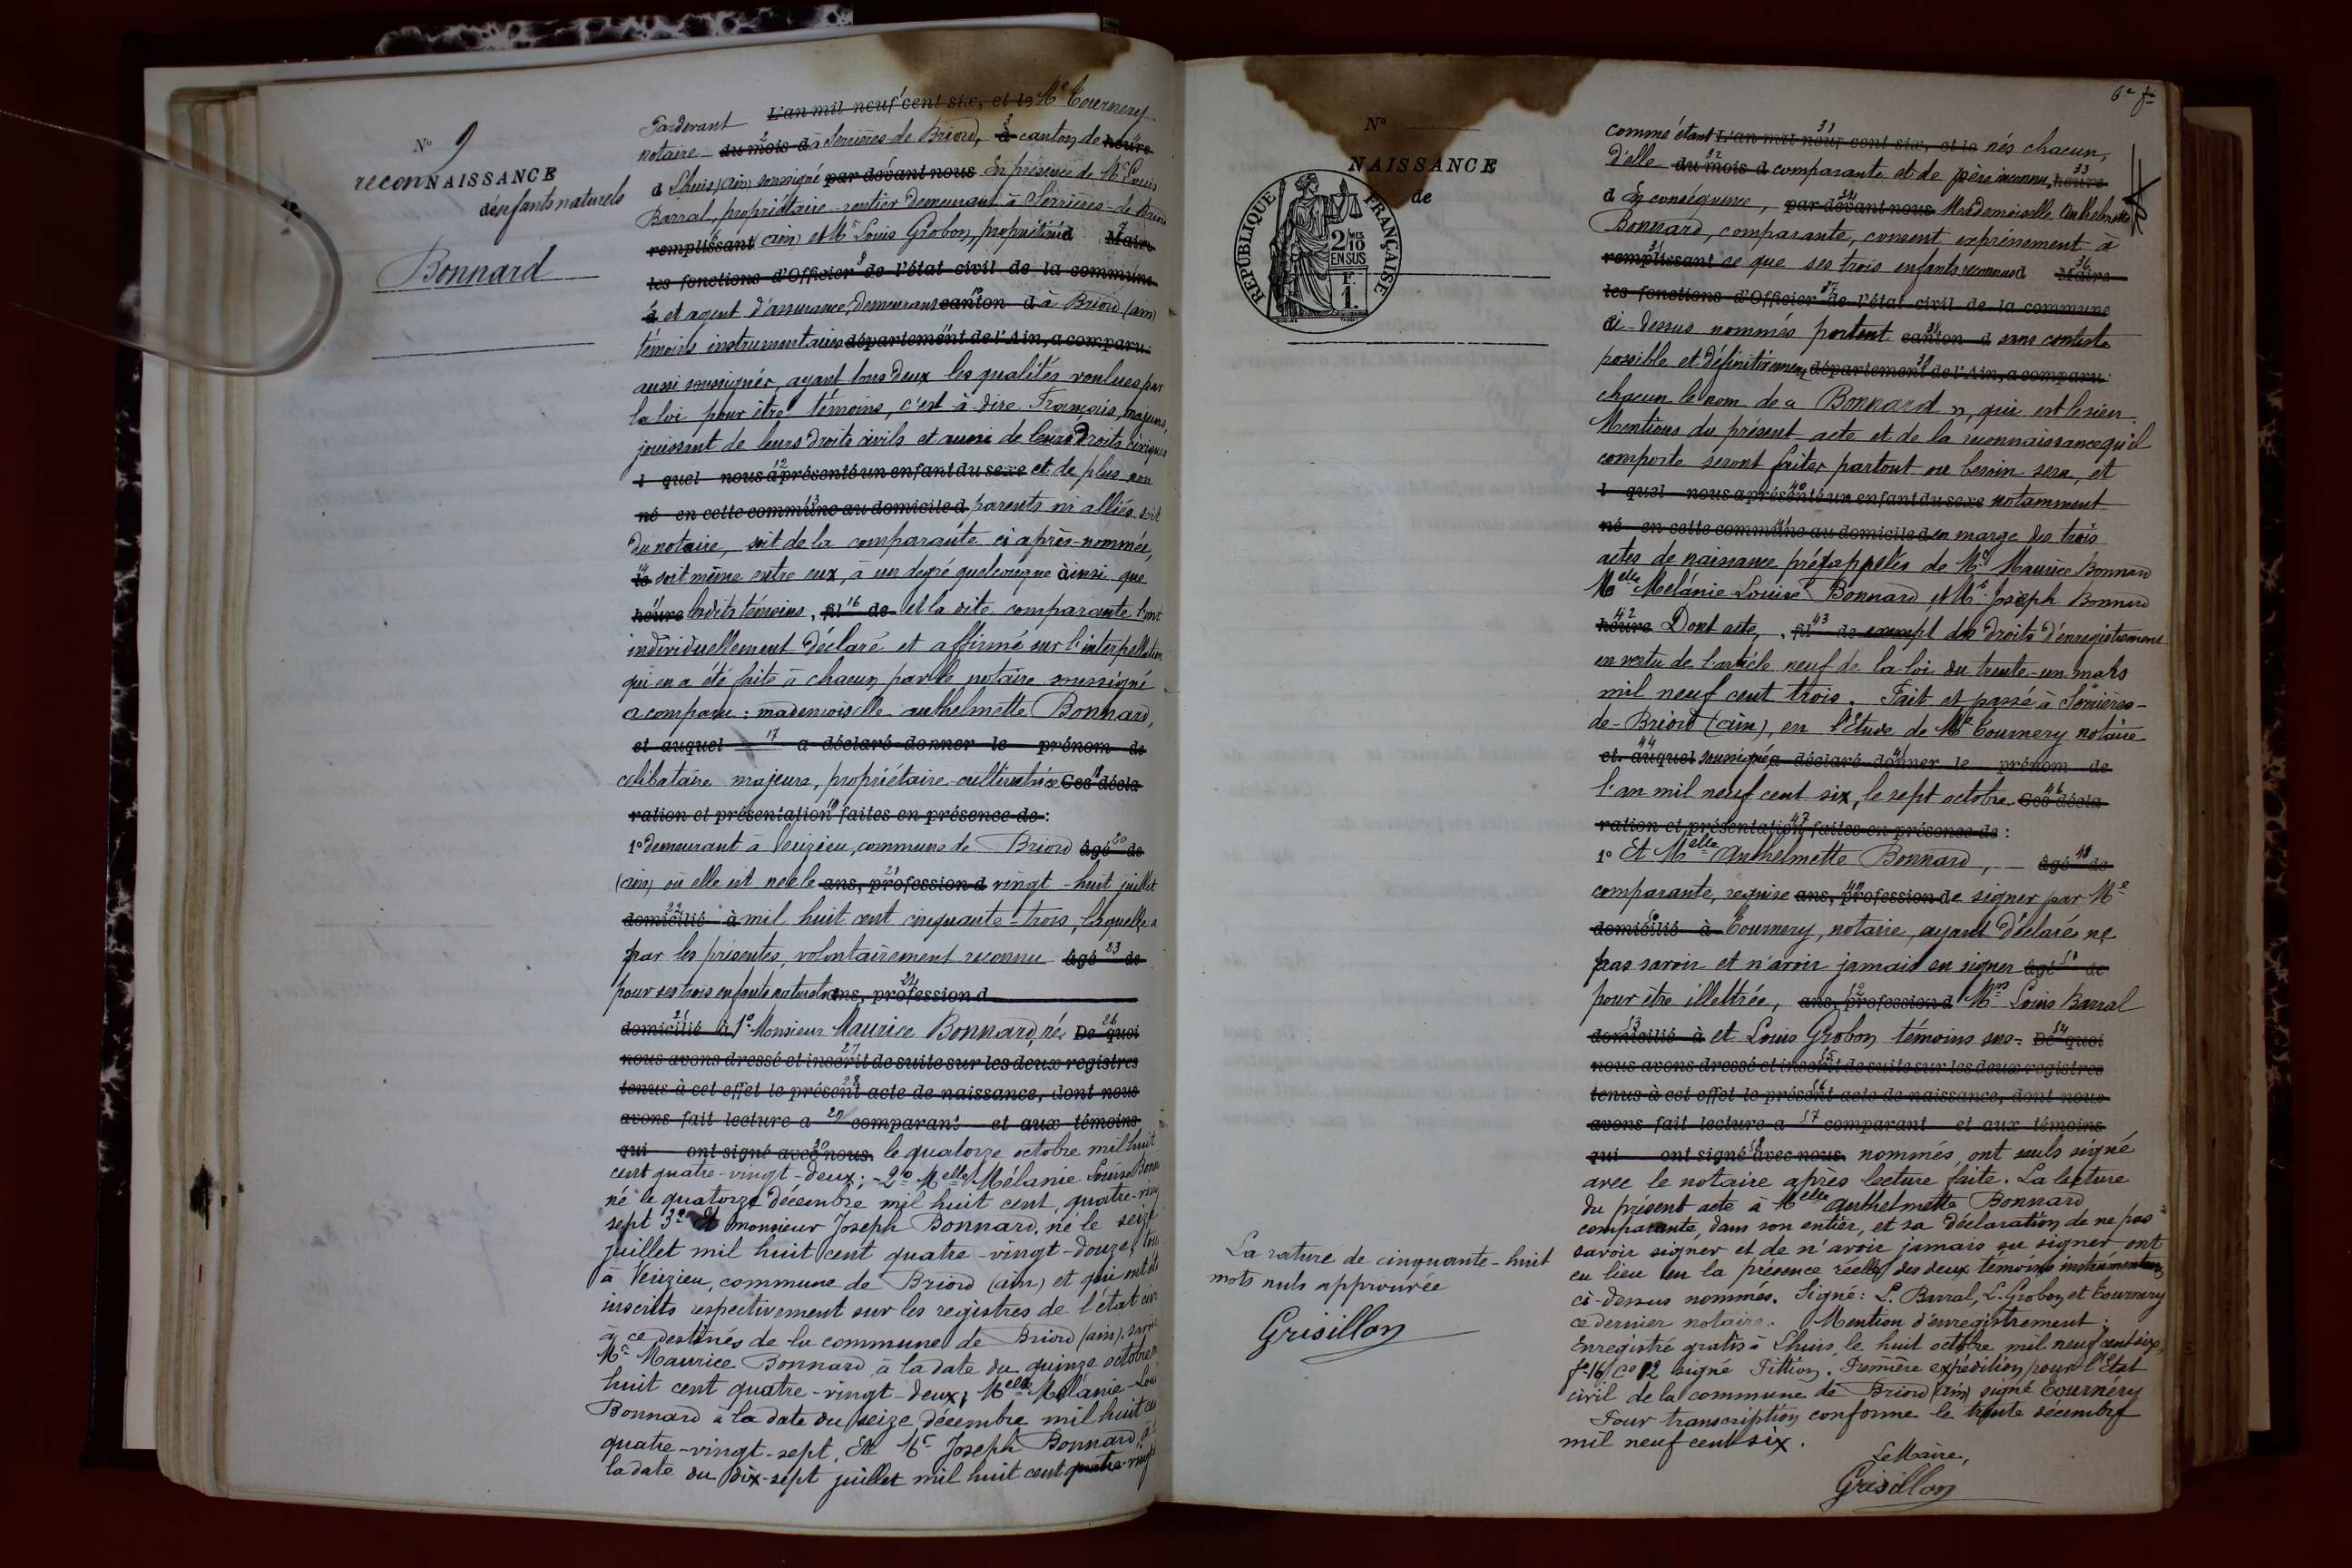 N° 9
reconNAISSANCE
d'enfants naturels
Bonnard
L'an mil neuf cent six, et le Me Tournery
Pardevant
notaire du mois d à Serrières-de Briord, à canton de heure
d Lhuis (ain) soussigné par devant nous En présence de Mr Louis
Barral, propriétaire-rentier demeurant à Serrières-de Briord
remplissant (ain) et Mr Louis Grobon, propriétaire d Maire
les fonctions d'Officier de l'état civil de la commune
d et agent d'assurance, demeurant canton d à Briord (ain)
témoins instrumentaires département de l'Ain, a comparu:
aussi soussignés, ayant tous deux les qualités voulues par
la loi pour être témoins, c'est à dire Français, majeurs,
jouissant de leurs droits civils et aussi de leurs Droits civiques
l quel nous a présenté un enfant du sexe et de plus non
né en cette commune au domicile d parents ni alliés, soit
du notaire, soit de la comparante ci après-nommée,
le soit même entre eux, à un degré quelconque ainsi que
heure lesdits témoins, fil de et la dite comparante l'ont
individuellement déclaré et affirmé sur l'interpellation
qui en a été faite à chacun par le notaire soussigné
a comparu: mademoiselle anthelmette Bonnard,
et auquel a déclaré donner le prénom de
celibataire majeure, propriétaire-cultivatrice Ces décla
ration et présentation faites en présence de:
1° demeurant à Vérizieu, commune de Briord âgé de
(ain) où elle est née le ans, profession d vingt-huit juillet
domicilié à mil huit cent cinquante-trois, laquelle a
par les présentes, volontairement reconnu âgé de
pour ses trois enfants naturels ans, profession d
domicilié à 1° Monsieur Maurice Bonnard, né De quoi
nous avons dressé et inscrit de suite sur les deux registres
tenus à cet effet le présent acte de naissance, dont nous
avons fait lecture a comparant et aux témoins
qui ont signé avec nous. le quatorze octobre mil huit
cent quatre-vingt-deux; -2° Melle Mélanie Louise Bonn
né le quatorze décembre mil huit cent quatre-ving
sept 3° Et monsieur Joseph Bonnard, né le seize
juillet mil huit cent quatre-vingt-douze, tous
à Vérizieu, commune de Briord (ain) et qui ont été
inscrits respectivement sur les registres de l'état civ
à ce destinés de la commune de Briord (ain), savoir
Mr Maurice Bonnard à la date du quinze octobre m
huit cent quatre-vingt-deux, Melle Mélanie-Loui
Bonnard à la date du seize décembre mil huit cen
quatre-vingt-sept, Et Mr Joseph Bonnard, à
la date du dix-sept juillet mil huit cent quatre-vingt
N°
NAISSANCE
de
RÉPUBLIQUE FRANÇAISE
2/10 MES
EN SUS
1 F.
La rature de cinquante-huit
mots nuls approuvée
Grisillon
6e ft
comme étant L'an mil neuf cent six, et le nés chacun,
d'elle du mois d comparante et de père inconnu, heure
d En conséquence, par devant nous Mademoiselle anthelmette
Bonnard, comparante, consent expressément à
remplissant ce que ses trois enfants reconnus d Maire
les fonctions d'Officier de l'état civil de la commune
d ci-dessus nommés portent canton d sans conteste
possible et définitivement département de l'Ain, a comparu:
chacun le nom de « Bonnard », qui est le sien.
Mentions du présent acte et de la reconnaissance qu'il
comporte seront faites partout où besoin sera, et
l quel nous a présenté un enfant du sexe notamment
né en cette commune au domicile d en marge des trois
actes de naissance prérappelés de Mr Maurice Bonnard
Melle Mélanie Louise Bonnard et Mr Joseph Bonnard
heure Dont acte, fil de exempt des droits d'enregistrement
en vertu de l'article neuf de la loi du trente-un mars
mil neuf cent trois. Fait et passé à Serrières-
de-Briord (ain), en l'Etude de Me Tournery notaire
et auquel soussigné a déclaré donner le prénom de
l'an mil neuf cent six, le sept octobre. Ces décla
ration et présentation faites en présence de:
1° Et Melle Anthelmette Bonnard, âgé de
comparante, requise ans, profession de signer par Me
domicilié à Tournery, notaire, ayant déclaré ne
pas savoir et n'avoir jamais su signer âgé de
pour être illettrée, ans, profession d Mrs Louis Barral
domicilié à et Louis Grobon témoins sus- De quoi
nous avons dressé et inscrit de suite sur les deux registres
tenus à cet effet le présent acte de naissance, dont nous
avons fait lecture a comparant et aux témoins
qui ont signé avec nous. nommés, ont seuls signé
avec le notaire après lecture faite. La lecture
du présent acte à Melle anthelmette Bonnard
comparante, dans son entier, et sa déclaration de ne pas
savoir signer et de n'avoir jamais su signer, ont
eu lieu en la présence réelle des deux témoins instrumentaires
ci-dessus nommés. Signé: L. Barral, L. Grobon et Tournery
ce dernier notaire. Mention d'enregistrement:
Enregistré gratis à Lhuis, le huit octobre mil neuf cent six,
f° 16, c° 12 signé Fittion. Première expédition pour l'Etat
civil de la commune de Briord (ain) signé Tournéry
Pour transcription conforme le trente décembre
mil neuf cent six.
Le Maire,
Grisillon